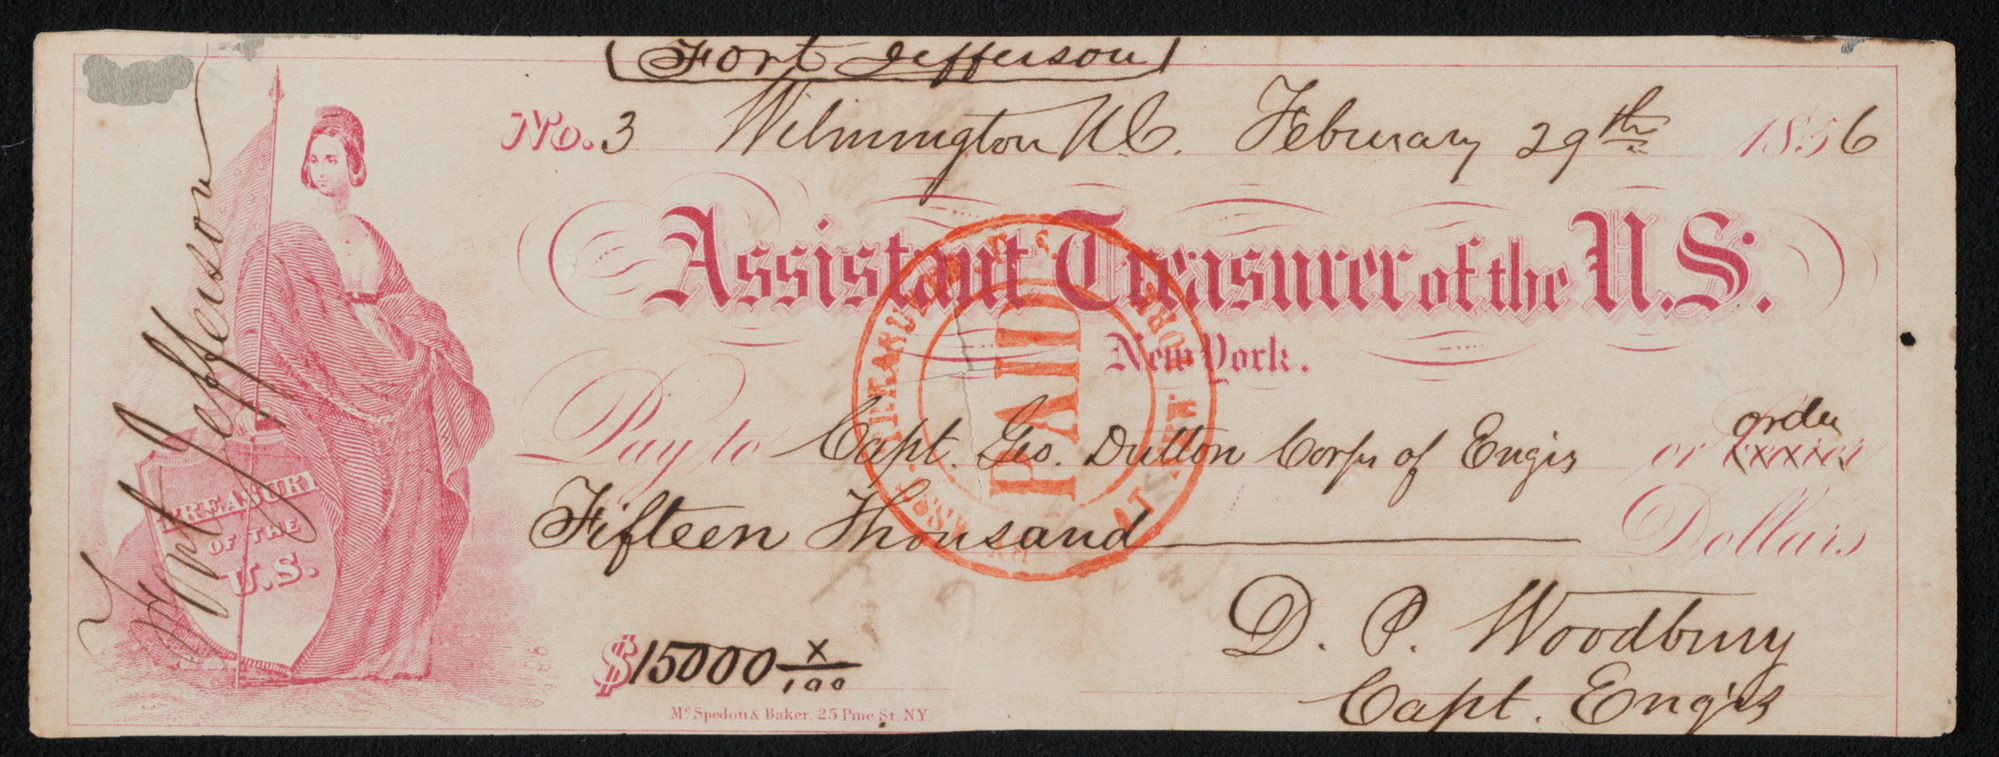 (Fort Jefferson)
No. 3 Wilmington N.C. February 29th 1856
Assistant Treasurer of the U.S.
New York.
Pay to Capt. Geo. Dutton Corps of Engrs or order
Fifteen Thousand Dollars
$15000 x/100
D. P. Woodbury
Capt. Engrs
Mc Spedon & Baker, 25 Pine St. N.Y.
Fort Jefferson
TREASURY
OF THE
U.S.
PAID